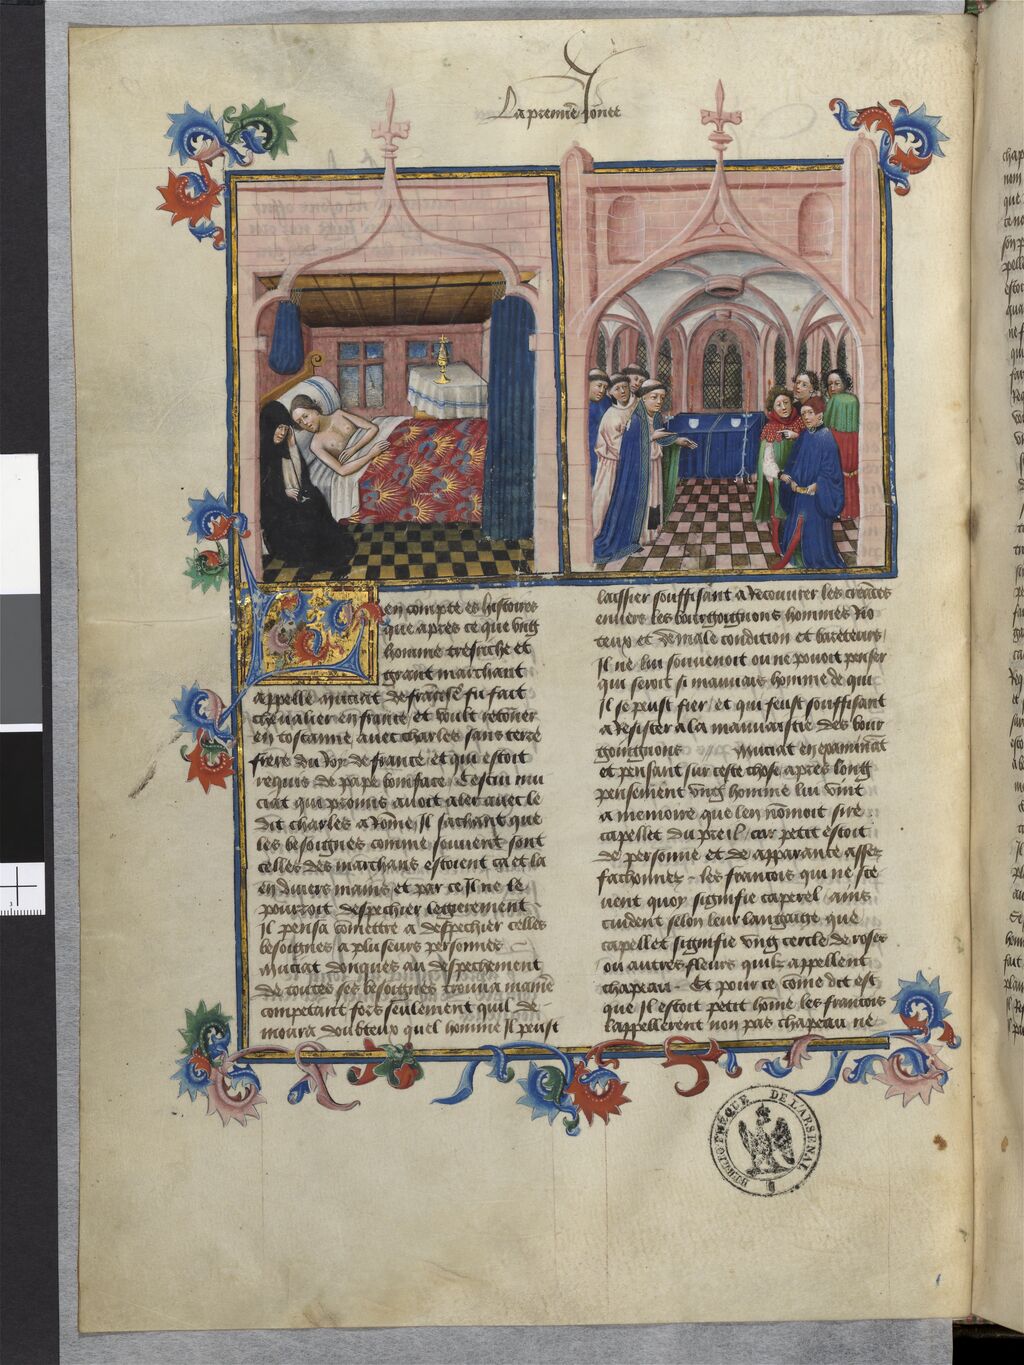 La premiere Jornee
L'en compte es histoires
que apres ce que ung
homme tresriche et
grant marchant
appelle muciat de francese fu fait
chevalier en france et voult retorner
en toscanne avec Charles sans terre
frere du Roy de france et qui estoit
requis de pape boniface. Cestui mu
ciat qui promis avoit aler avec le
dit charles a Rome, Il sachant que
les besoignes comme souvent sont
celles des marchans estoient ca et la
en divers mains et par ce Il ne le
pourroit despechier legierement
Il pensa comettre a despechier celles
besoignes a pluseurs personnes
Muciat donques au despechement
de toutes ses besoignes trouva maniere
competant fors seulement quil de
moura doubteux quel homme Il peust
laissier souffisant a Recouvrer les creances
envers les bourgoignons hommes Rio
teux et de male condition et bareteurs
Il ne lui souvenoit ou ne povoit penser
qui seroit si mauvais homme de qui
Il se peust fier, et qui feust souffisant
a Resister a la mauvaistie des bour
goignons Muciat en examinant
et pensant sur ceste chose apres long
pensement ung homme lui vint
a memoire que len nomoit sire
capellet du preil, car petit estoit
de personne et de apparance assez
fachonnez. les francois qui ne sce
vent quoy signifie caperel ains
cuident selon leur langaige que
capellet signifie ung cercle de roses
ou autres fleurs quilz appellent
chapeau. Et pour ce come dit est
que Il estoit petit home les francois
lappellerent non pas chapeau ne
BIBLIOTHÈQUE DE L'ARSENAL